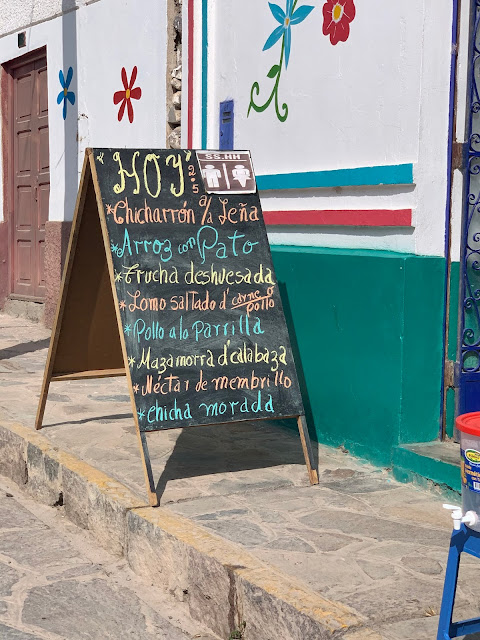 "HOY" 2.5
SS.HH
*Chicharrón a/la Leña
*Arroz con Pato
*Trucha deshuesada
*Lomo saltado d' carne o pollo
*Pollo a lo Parrilla
*Mazamorra d' calabaza
*Néctar de membrillo
*chicha morada